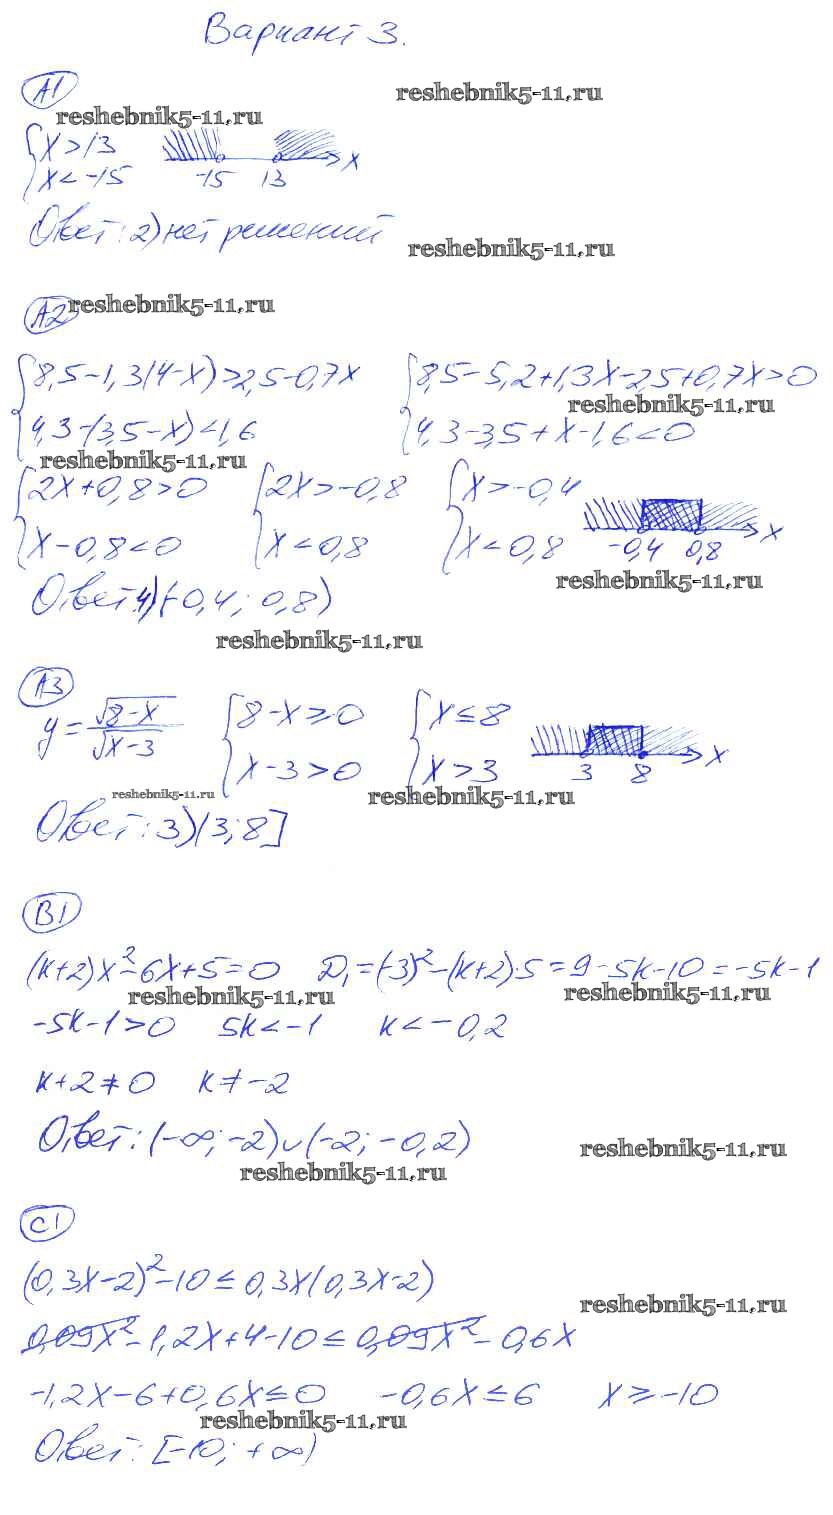 Вариант 3.
А1
reshebnik5-11.ru
reshebnik5-11.ru
{ x > 13
x < -15
-15 13 x
Ответ: 2) нет решений
reshebnik5-11.ru
А2
reshebnik5-11.ru
{ 8,5-1,3(4-x)>2,5-0,7x { 8,5-5,2+1,3x-2,5+0,7x>0
reshebnik5-11.ru
4,3-(3,5-x)<1,6 4,3-3,5+x-1,6<0
reshebnik5-11.ru
{ 2x+0,8>0 { 2x>-0,8 { x>-0,4
x-0,8<0 x<0,8 x<0,8 -0,4 0,8 x
reshebnik5-11.ru
Ответ: 4) (-0,4; 0,8)
reshebnik5-11.ru
А3
y = √8-x / √x-3 { 8-x≥0 { x≤8
x-3>0 x>3 3 8 x
reshebnik5-11.ru reshebnik5-11.ru
Ответ: 3) (3; 8]
В1
(k+2)x²-6x+5=0 D₁=(-3)²-(k+2)·5=9-5k-10=-5k-1
reshebnik5-11.ru reshebnik5-11.ru
-5k-1>0 5k<-1 k<-0,2
k+2≠0 k≠-2
Ответ: (-∞; -2)∪(-2; -0,2)
reshebnik5-11.ru
reshebnik5-11.ru
С1
(0,3x-2)²-10≤0,3x(0,3x-2)
reshebnik5-11.ru
0,09x²-1,2x+4-10≤0,09x²-0,6x
-1,2x-6+0,6x≤0 -0,6x≤6 x≥-10
reshebnik5-11.ru
Ответ: [-10; +∞)